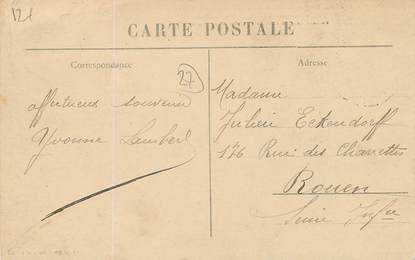 121
CARTE POSTALE
Correspondance
Adresse
27
affectueux souvenir
Yvonne Lambert
Madame
Julien Eckendorff
176 Rue des Charrettes
Rouen
Seine Infre